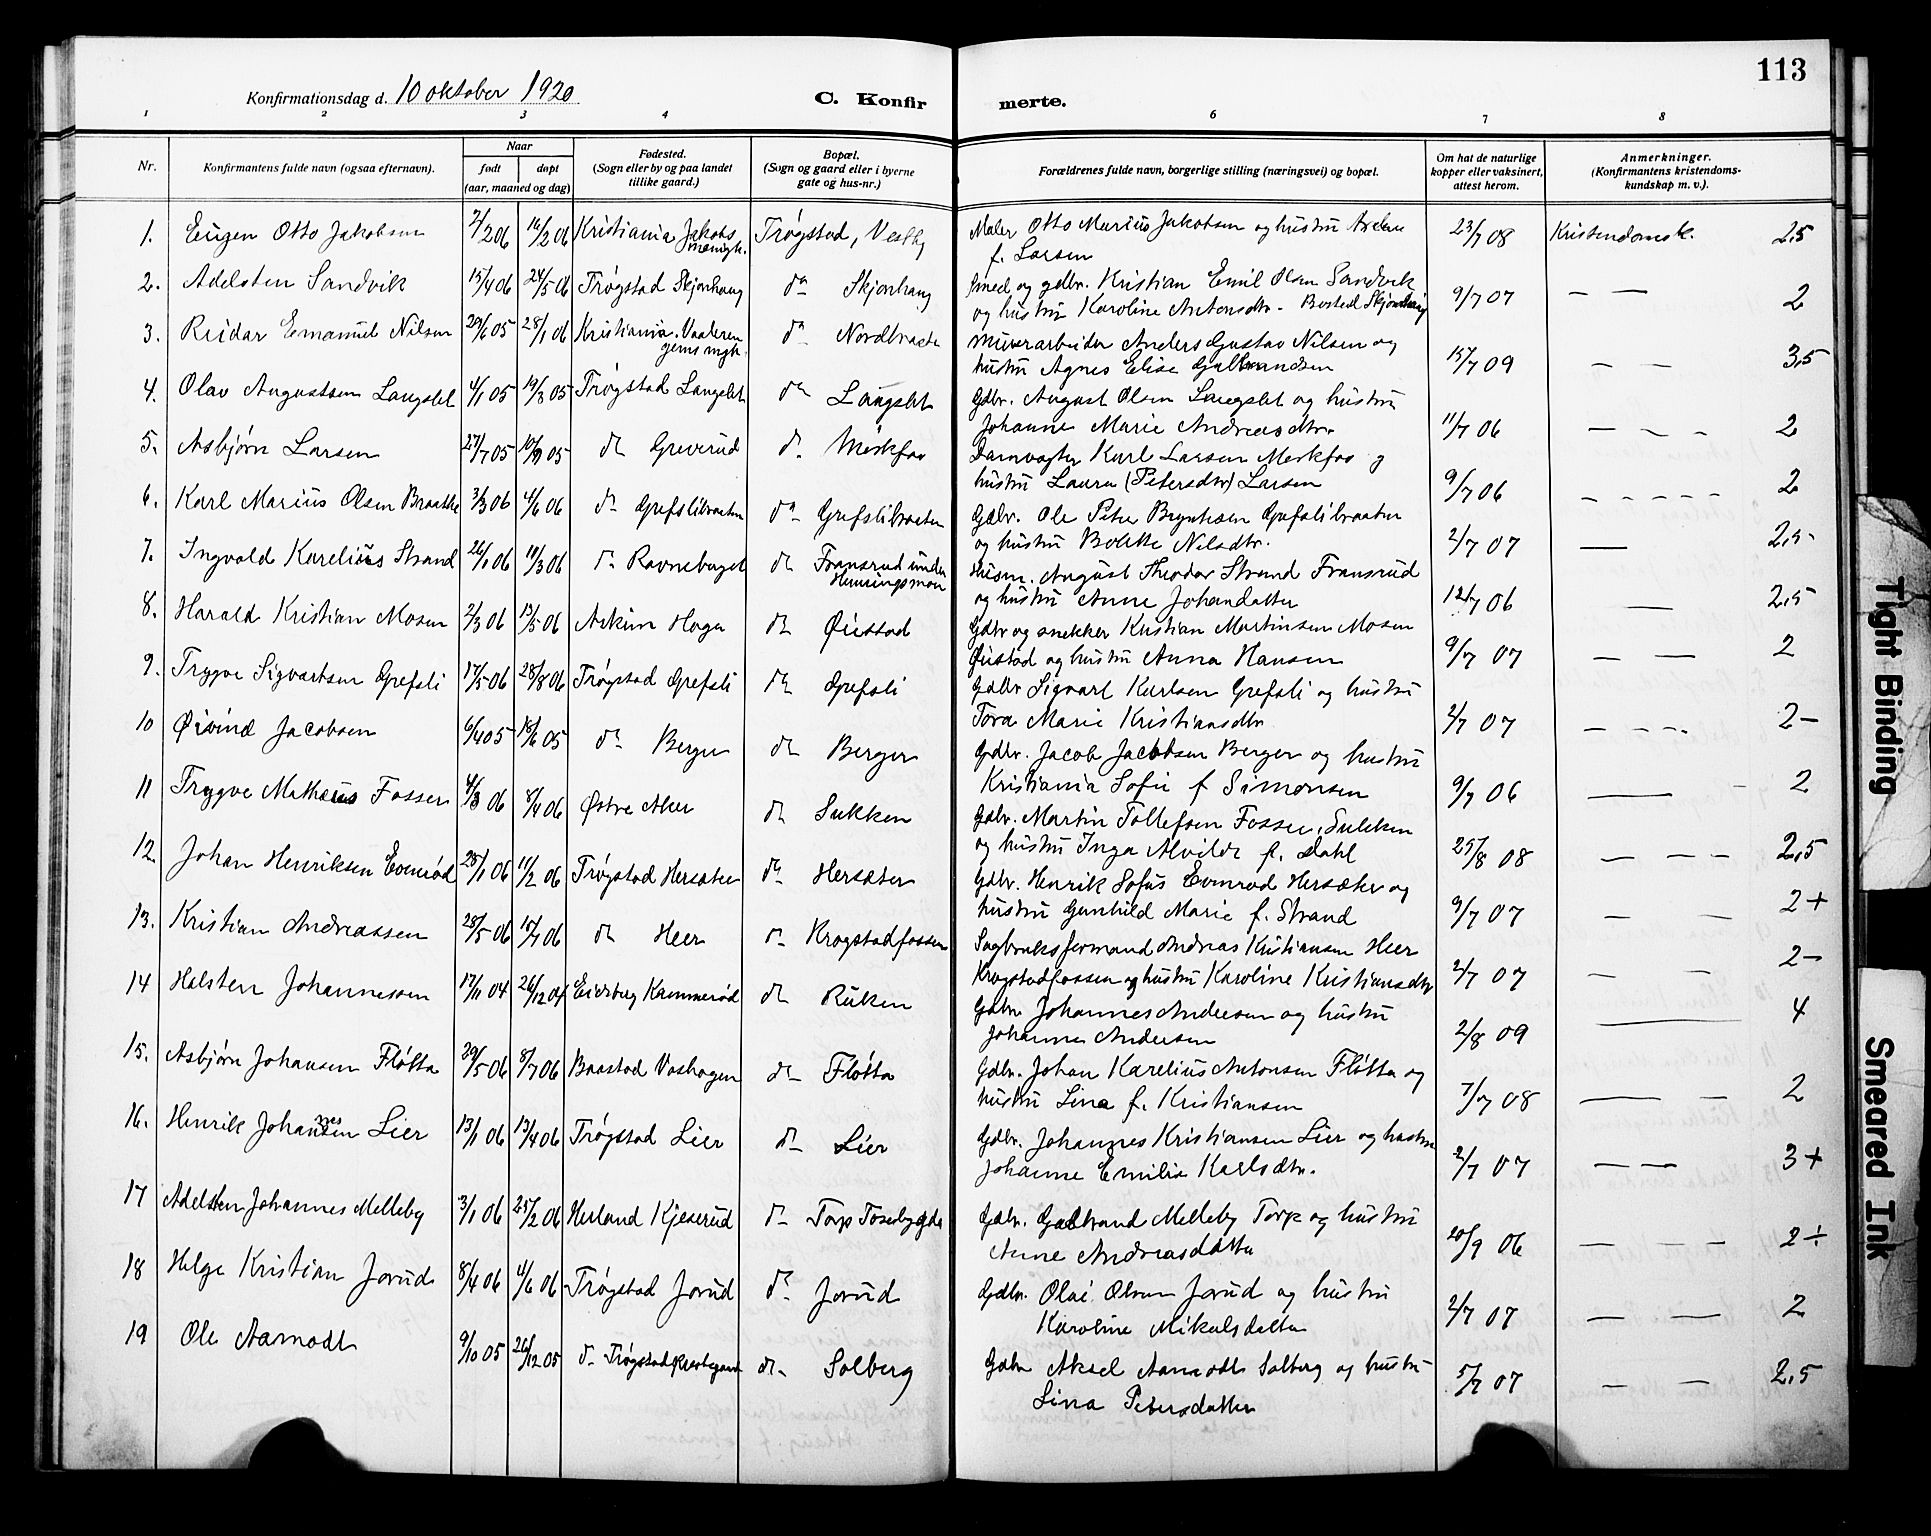 113
Konfirmationsdag d. 10 oktober 1920
C. Konfirmerte.
1 2 3 4 6 7 8
Nr. Konfirmantens fulde navn (ogsaa efternavn). Naar født døpt (aar, maaned og dag) Fødested. (Sogn eller by og paa landet tillike gaard.) Bopæl. (Sogn og gaard eller i byerne gate og hus-nr.) Forældrenes fulde navn, borgerlige stilling (næringsvei) og bopæl. Om hat de naturlige kopper eller vaksinert, attest herom. Anmerkninger. (Konfirmantens kristendomskundskap m. v.).
1. Eugen Otto Jakobsen 7/2 06 Kristiania Jakobs menigh. Trøgstad, Maler Otto Marius Jakobsen og hustru 23/7 08 Kristendomsk. 2,5
f. Larsen
2. Adelsten Sandvik 15/4 06 24/5 06 Trøgstad Skjønhaug do Skjønhaug Smed og gdbr. Kristian Emil Olsen Sandvik 9/7 07 — — 2
og hustru Karoline Antonsdtr. Bosted Skjønhaug
3. Reidar Emanuel Nilsen 29/6 05 28/1 06 Kristiania. Vaalerengens mgh. do Nordbraate Murerarbeider Anders Gustav Nilsen og 15/7 09 — — 3,5
hustru Agnes Elise Gulbrandsen
4. Olav Augustsen Langslet 4/1 05 19/3 05 Trøgstad Langslet do Langslet Gdbr. August Olsen Langslet og hustru 11/7 06 — — — 2
Johanne Marie Andreasdtr.
5. Asbjørn Larsen 27/7 05 10/9 05 do Greverud do Mørkfos Damvogter Karl Larsen Mørkfos og 9/7 06 — — — 2
hustru Laura (Petersdtr) Larsen
6. Karl Marius Olsen Braatte 3/3 06 4/6 06 do Grefslibraaten do Grefslibraaten Gdbr. Ole Peter Grefslibraaten 2/7 07 — 2,5
og hustru Nilsdtr.
7. Ingvald Karelius Strand 26/1 06 11/3 06 do do Fransrud under Henningsmoen Husm. August Theodor Strand Fransrud 12/7 06 — 2,5
og hustru Anne Johansdatter
8. Harald Kristian Mosen 2/3 06 13/5 06 Askim Haga do Øistad Gdbr og snekker Kristian Martinsen Mosen 9/7 07 — — 2
Øistad og hustru Anna Hansen
9. Trygve Sigvartsen Grefsli 17/5 06 28/8 06 Trøgstad Grefsli do Grefsli Gdbr Sigvart Karlsen Grefsli og hustru 2/7 07 — — — 2-
Tora Marie Kristiansdtr
10 Øivind Jacobsen 6/4 05 18/6 05 do Berger do Berger Gdbr. Jacob Jacobsen Berger og hustru 9/7 06 — - 2
Kristiania Sofie f Simonsen
11 Trygve Mathæus Fosser 4/3 06 8/4 06 Østre Aker do Sukken Gdbr. Martin Tollefsen Fosser, Sukken 25/8 08 — — — 2,5
og hustru Inga Alvilde f. Dahl
12. Johan Henriksen Evenrød 25/1 06 11/2 06 Trøgstad Hersæter do Hersæter Gdbr. Henrik Sofus Evenrød Hersæter og 9/7 07 — — 2+
hustru Gunhild Marie f. Strand
13. Kristian Andreassen 28/5 06 15/7 06 do Heer do Krogstadfossen Sagbruksformand Andreas Kristiansen Heer 2/7 07 — — 2-
Krogstadfossen og hustru Karoline Kristiansdtr
14 Halsten Johannessen 17/11 04 26/12 04 Eidsberg Kammerød do Ruken Gdbr Johannes Andersen og hustru 2/8 09 — 4
Johanne Andersen
15. Asbjørn Johansen Fløtta 29/5 06 8/7 06 Baastad Voshagen do Fløtta Gdbr. Johan Karelius Antonsen Fløtta og 7/7 08 — — 2
hustru Lina f. Kristiansen
16. Henrik Johannesen Lier 13/1 06 13/4 06 Trøgstad Lier do Lier Gdbr. Johannes Kristiansen Lier og hustru 2/7 07 — — 3+
Johanne Emilie Karlsdtr.
17 Adelsten Johannes Melleby 3/1 06 25/2 06 Herland Kjeserud do Torp Gdbr. Gulbrand Melleby Torp og hustru 20/9 06 — — — 2÷
Anne Andreasdatter
18 Helge Kristian Jorud 8/4 06 4/6 06 Trøgstad Jorud do Jorud Gdbr. Olai Olsen Jorud og hustru 2/7 07 — — 2
Karoline Mikalsdatter
19 Ole Aamodt 9/10 05 26/12 05 do Trøgstad Prestegaard do Solberg Gdbr Aksel Aamodt Solberg og hustru 5/7 07 — — 2,5
Lina Petersdatter
Tight Binding
Smeared Ink